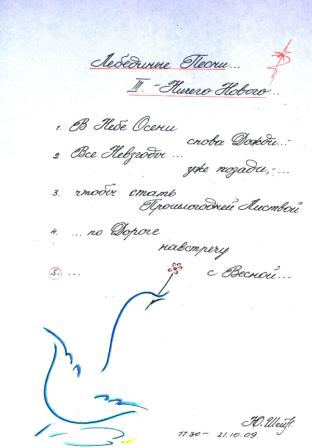 Лебединые Песни...
III. - Ничего Нового...
1. В Небе Осени
снова Дожди...-
2. Все Невзгоды...
уже позади,-...
3. чтобы стать
Прошлогодней Листвой
4. ... по Дороге
навстречу
5. ... с Весной...
Ю.
11.30 - 21.10.09.